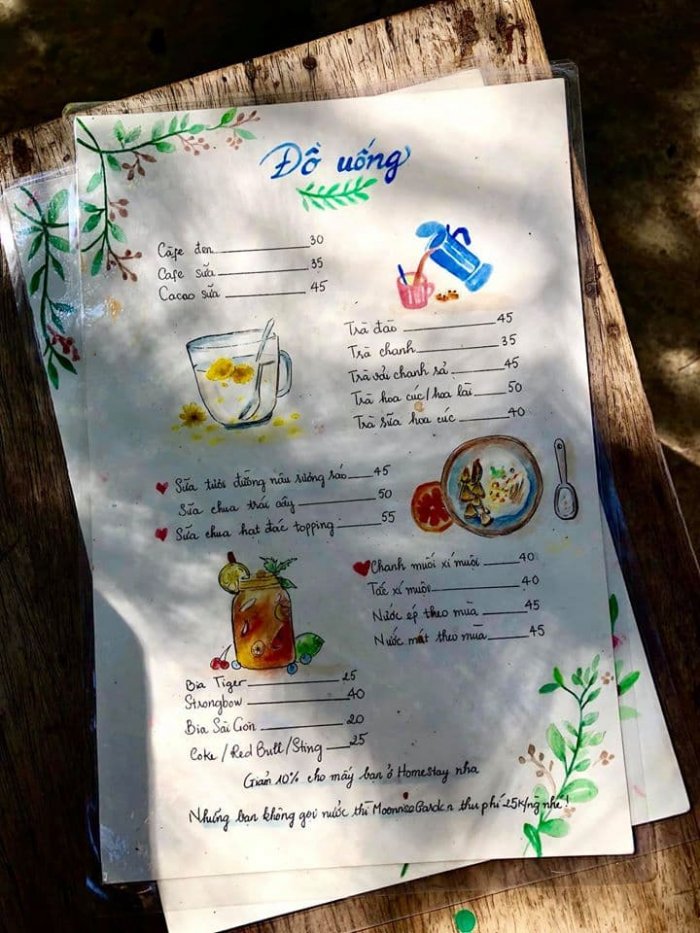 Đồ uống
Cafe đen 30
Cafe sữa 35
Cacao sữa 45
Trà đào 45
Trà chanh 35
Trà vải chanh sả 45
Trà hoa cúc/hoa lài 50
Trà sữa hoa cúc 40
Sữa tươi đường nâu sương sáo 45
Sữa chua trái cây 50
Sữa chua hạt đác topping 55
Chanh muối xí muội 40
Tắc xí muội 40
Nước ép theo mùa 45
Nước mát theo mùa 45
Bia Tiger 25
Strongbow 40
Bia Sài Gòn 20
Coke/Red Bull/Sting 25
Giảm 10% cho mấy bạn ở Homestay nha
Những bạn không gọi nước thì Moonrise Garden thu phí 25k/ng nhé!